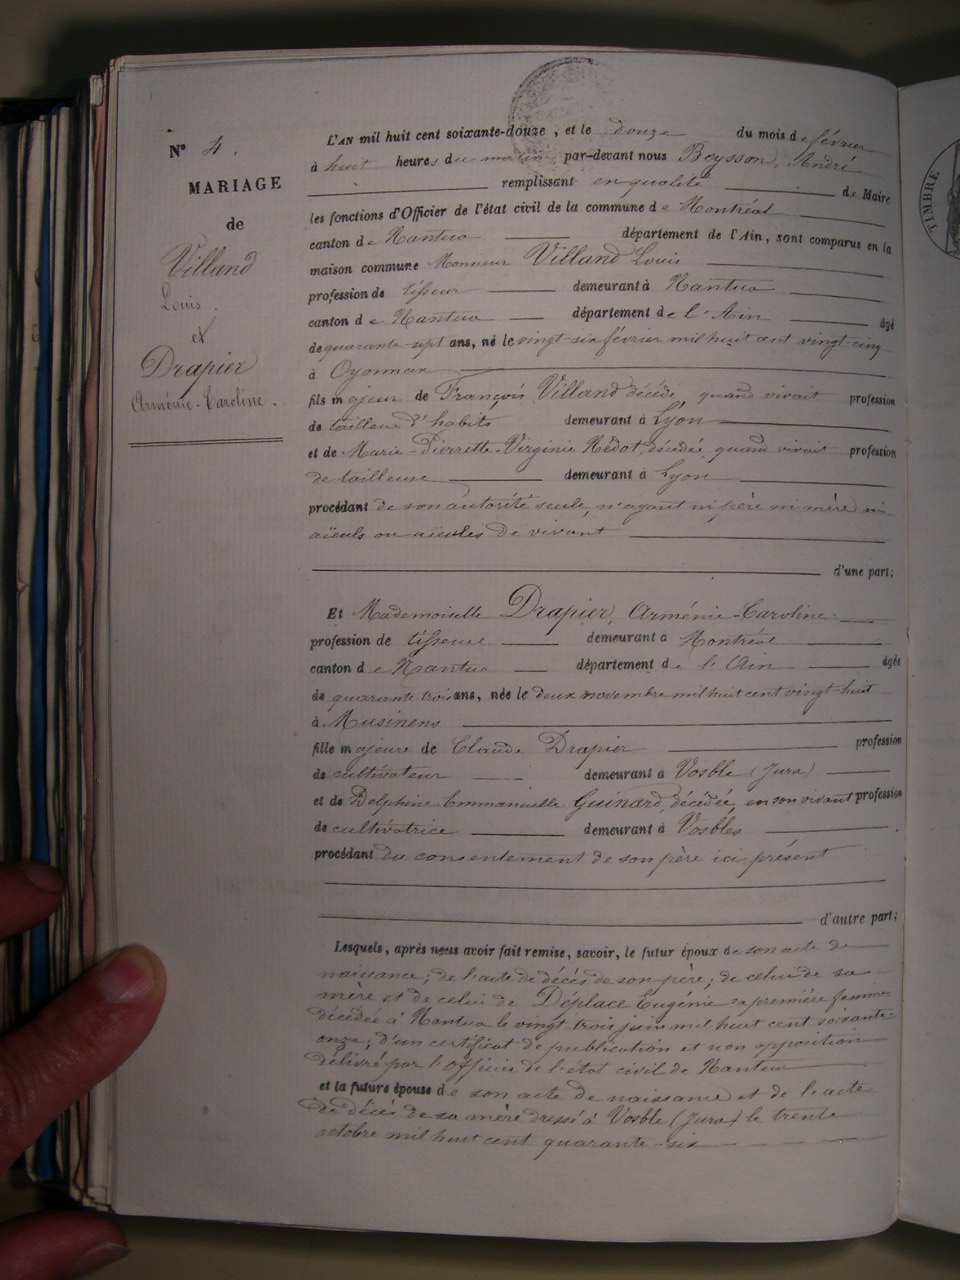 N° 4.
MARIAGE
de
Villand
Louis.
et
Drapier
Arménie-Caroline.
L'AN mil huit cent soixante-douze, et le douze du mois de février
à huit heures du matin par-devant nous Beysson, André
remplissant en qualité de Maire
les fonctions d'Officier de l'état civil de la commune de Montréal
canton de Nantua département de l'Ain, sont comparus en la
maison commune Monsieur Villand Louis
profession de tisseur demeurant à Nantua
canton de Nantua département de l'Ain âgé
de quarante sept ans, né le vingt-six février mil huit cent vingt-cinq
à Oyonnax
fils majeur de François Villand décédé, quand vivait profession
de tailleur d'habits demeurant à Lyon
et de Marie-Pierrette-Virginie Nédot, décédée, quand vivait profession
de tailleuse demeurant à Lyon
procédant de son autorité seule, n'ayant ni père ni mère ni
aïeuls ou aïeules de vivant
d'une part;
Et Mademoiselle Drapier, Arménie-Caroline
profession de tisseuse demeurant à Montréal
canton de Nantua département de l'Ain âgée
de quarante trois ans, née le deux novembre mil huit cent vingt huit
à Musinens
fille majeure de Claude Drapier profession
de cultivateur demeurant à Vosble (Jura)
et de Delphine Emmanuelle Guinard, décédée, en son vivant profession
de cultivatrice demeurant à Vosbles
procédant du consentement de son père ici présent
d'autre part;
Lesquels, après nous avoir fait remise, savoir, le futur époux de son acte de
naissance; de l'acte de décès de son père; de celui de sa
mère et de celui de Déplace Eugénie sa première femme
décédée à Nantua le vingt trois juin mil huit cent soixante-
onze; d'un certificat de publication et non opposition
délivré par l'officier de l'état civil de Nantua
et la future épouse de son acte de naissance et de l'acte
de décès de sa mère dressé à Vosble (Jura) le trente
octobre mil huit cent quarante-six
TIMBRE